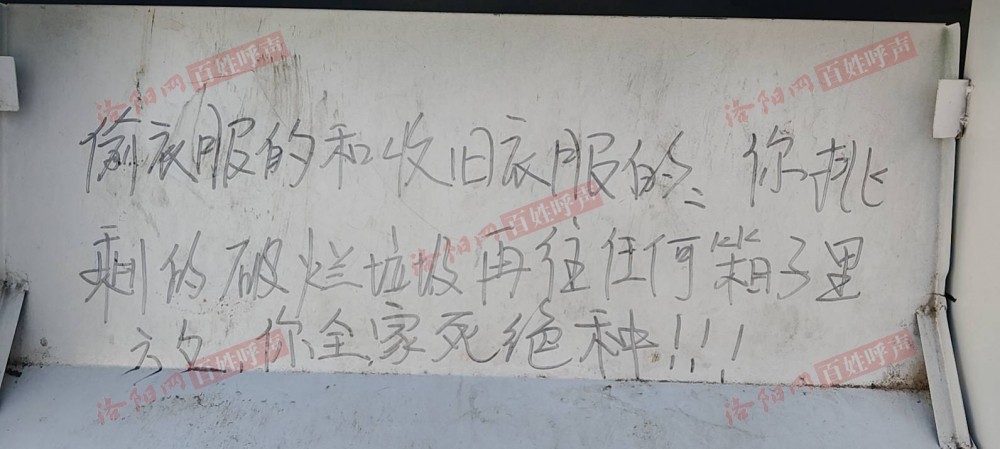 偷衣服的和收旧衣服的、你挑
剩的破烂垃圾再往任何箱子里
放,你全家死绝种!!!
洛阳网 百姓呼声
洛阳网 百姓呼声
洛阳网 百姓呼声
洛阳网 百姓呼声
洛阳网 百姓呼声